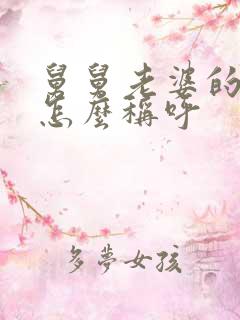 舅舅老婆的
怎麼稱呼
多夢女孩